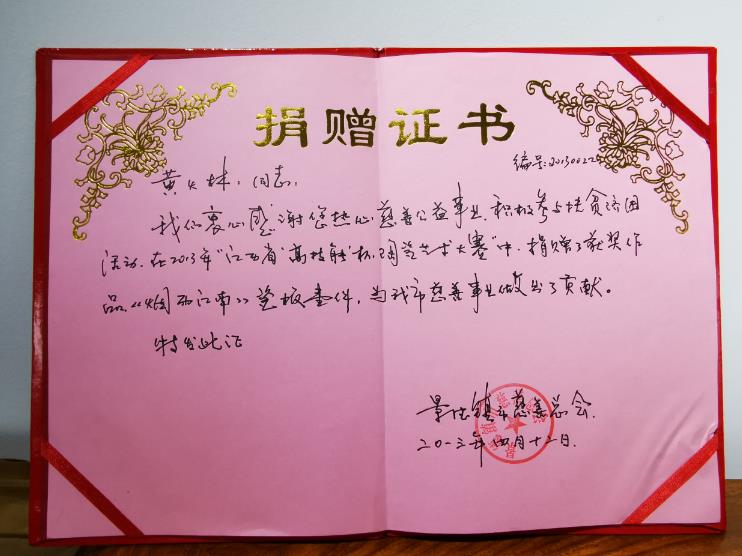 捐赠证书
编号:20130022
黄久林:同志:
我们衷心感谢您热心慈善公益事业,积极参与扶贫济困
活动.在2013年“江西省“高技能”杯,陶瓷艺术大赛”中,捐赠了获奖作
品《烟雨江南》瓷板壹件,为我市慈善事业做出了贡献。
特发此证
景德镇市慈善总会.
二〇一三年四月十二日.